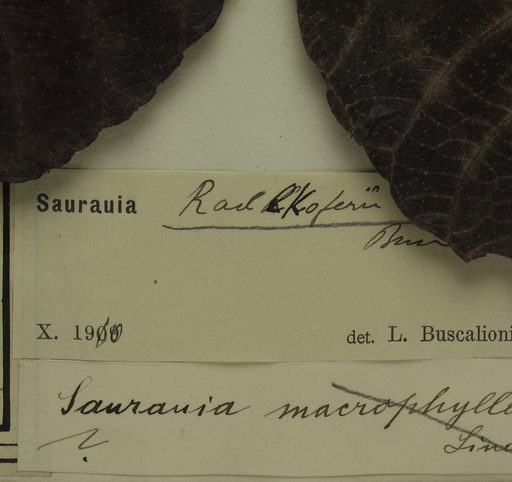 Saurauia Radlkoferii
Bus
X. 1910
det. L. Buscalioni
Saurauia macrophylla
? Lind